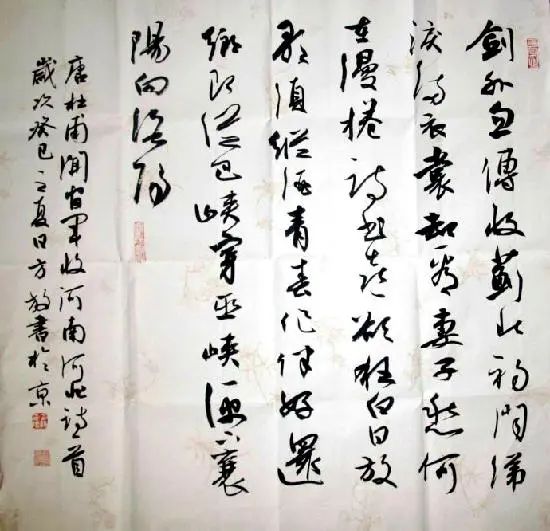 劍外忽傳收薊北初聞涕
淚滿衣裳却看妻子愁何
在漫捲詩書喜欲狂白日放
歌須縱酒青春作伴好還
鄉即從巴峽穿巫峽便下襄
陽向洛陽
唐杜甫聞官軍收河南河北詩一首
歲次癸巳立夏日方書於京